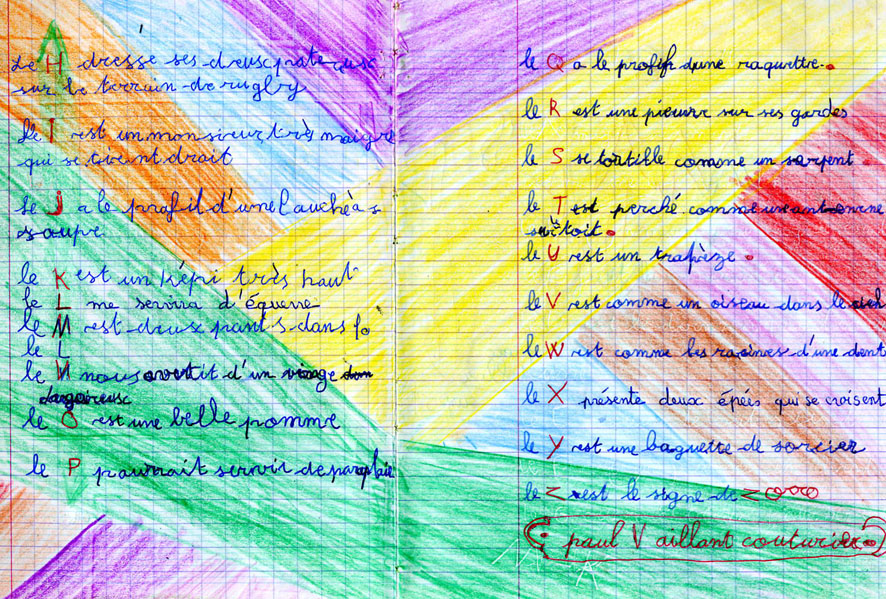 Le H dresse ses deux poteaux
sur le terrain de rugby
Le I est un monsieur très maigre
qui se tient droit
Le J a le profil d'une louche à s
soupe
le K est un képi très haut
le L me servira d'équerre
le M est deux ponts dans
le L
le N nous avertit d'un virage
dangereux
le O est une belle pomme
le P pourrait servir de parapluie
le Q a le profil d'une raquette.
le R est une pieuvr sur ses gardes
le S se tortille comme un serpent.
le T est perché comme une antenne
sur le toit.
le U est un trapèze.
le V est comme un oiseau dans le ciel
le W est comme les racines d'une dent
le X présente deux épées qui se croisent
le y est une baguette de sorcier
le Z est le signe de Zorro
paul Vaillant couturier